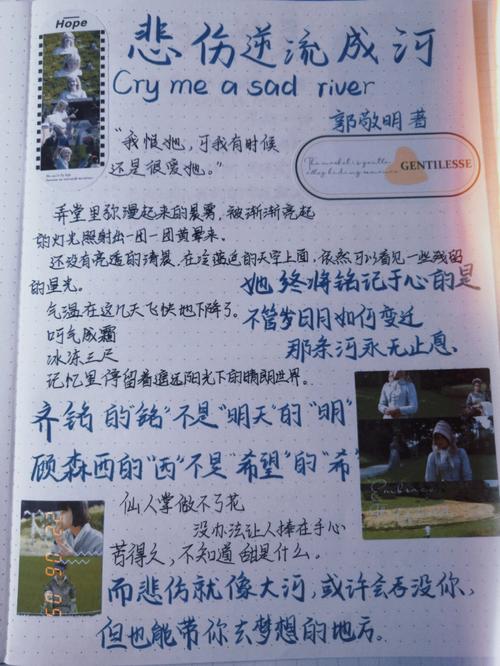 Hope
悲伤逆流成河
Cry me a sad river
郭敬明 著
“我恨她,可我有时候
还是很爱她。”
GENTILESSE
弄堂里弥漫起来的晨雾,被渐渐亮起
的灯光照射出一团一团黄晕来。
还没有亮透的清晨,在冷蓝色的天空上面,依然可以看见一些残留
的星光。
气温在这几天飞快地下降了。
呵气成霜
冰冻三尺
记忆里停留着遥远阳光下的晴朗世界。
她终将铭记于心的是
不管岁日月如何变迁
那条河永无止息、
齐铭的“铭”不是“明天”的“明”
顾森西的“西”不是“希望”的“希”
仙人掌做不了花
没办法让人捧在手心
苦得久,不知道甜是什么。
而悲伤就像大河,或许会吞没你,
但也能带你去梦想的地方。
Embrace